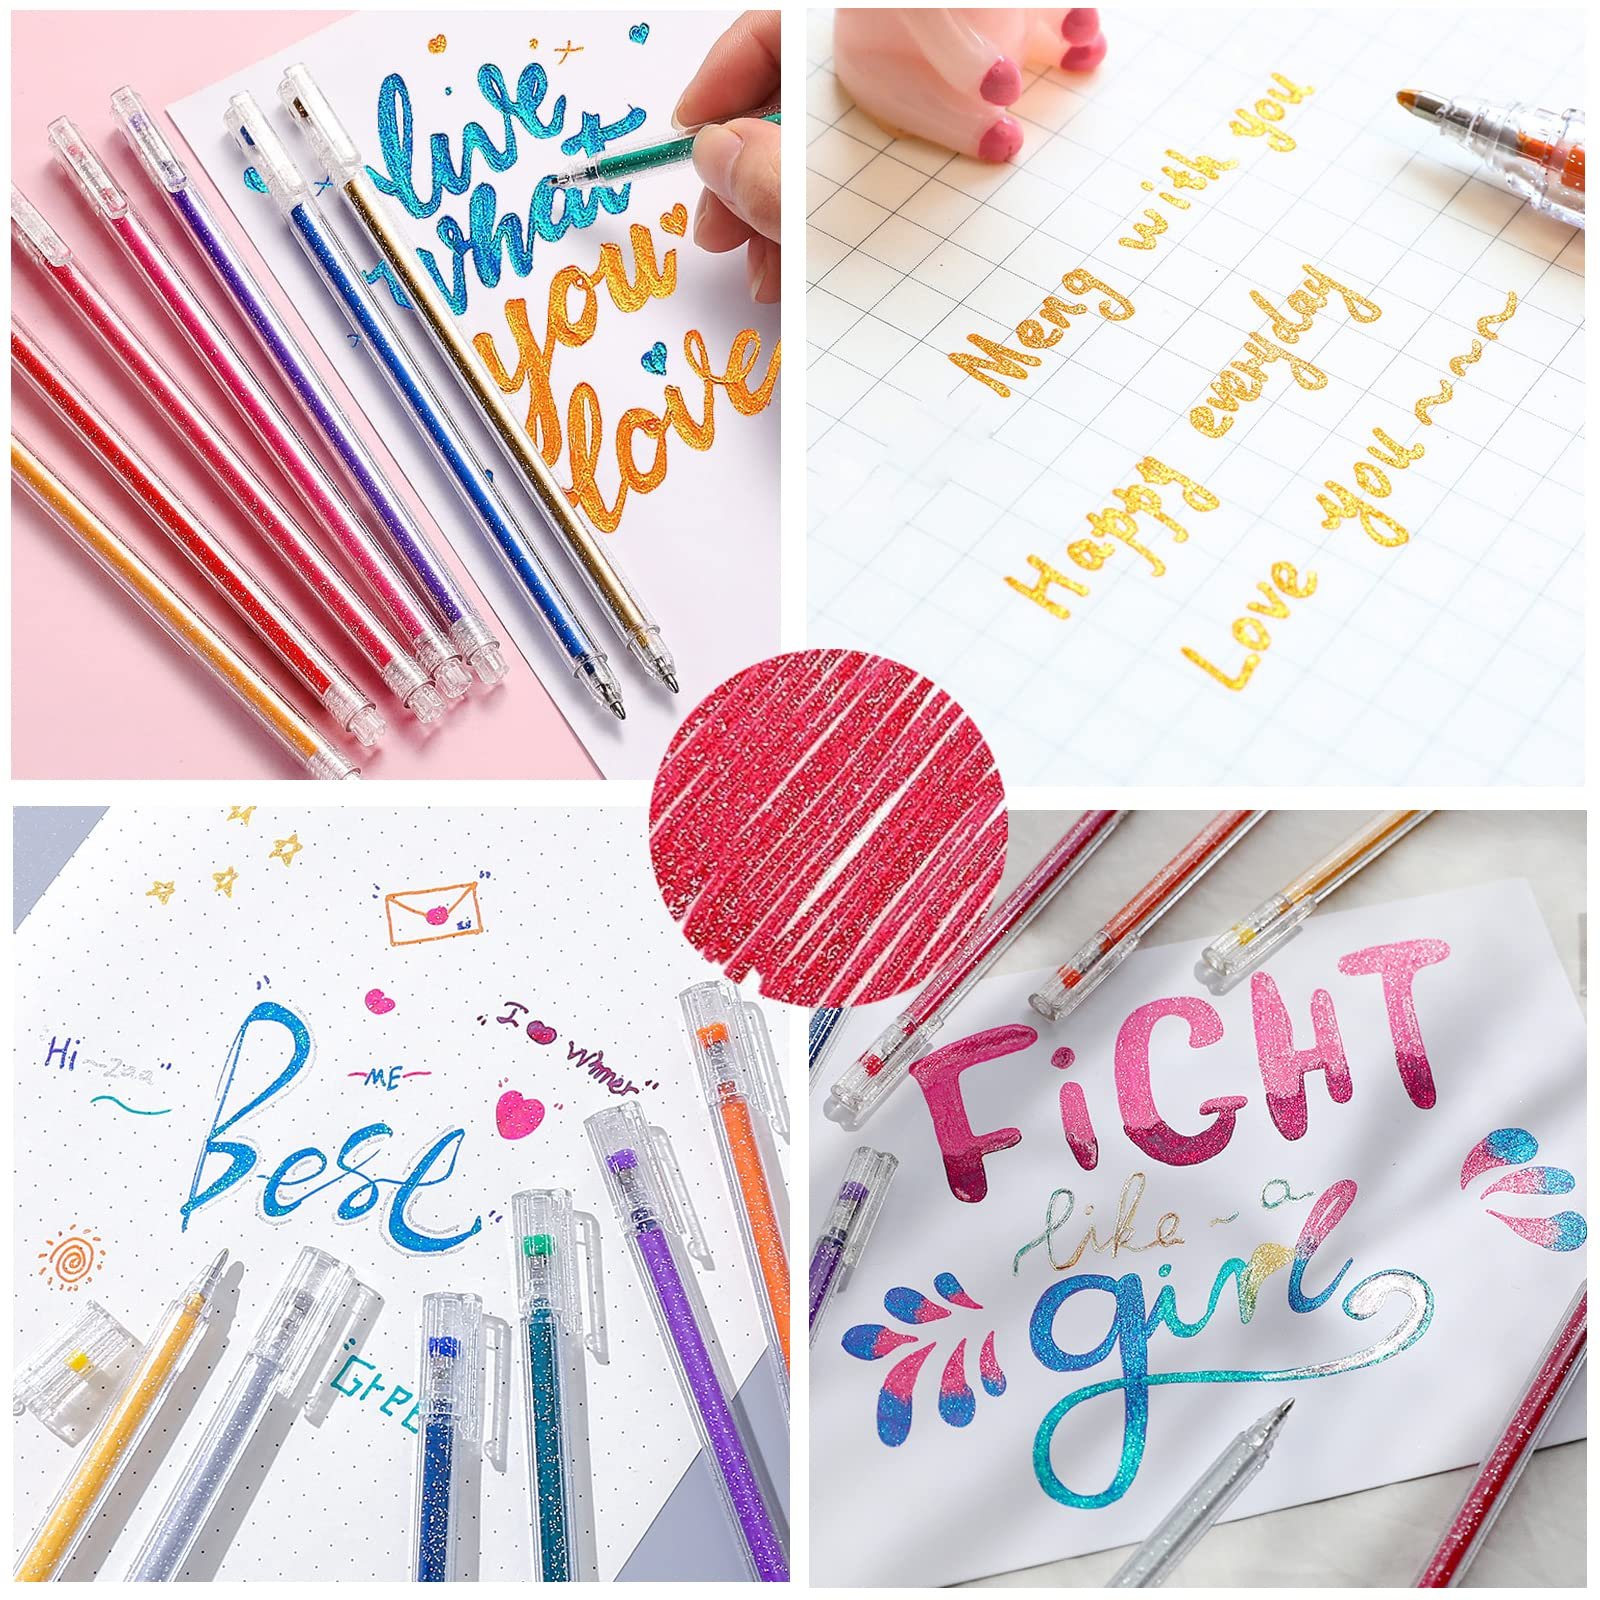 live
what
you
love
Meng with you
Happy everyday
Love you~~~
"Hi~2aa"
"Best"
-ME-
"I
"Gree
FiGHT
like~a
girl